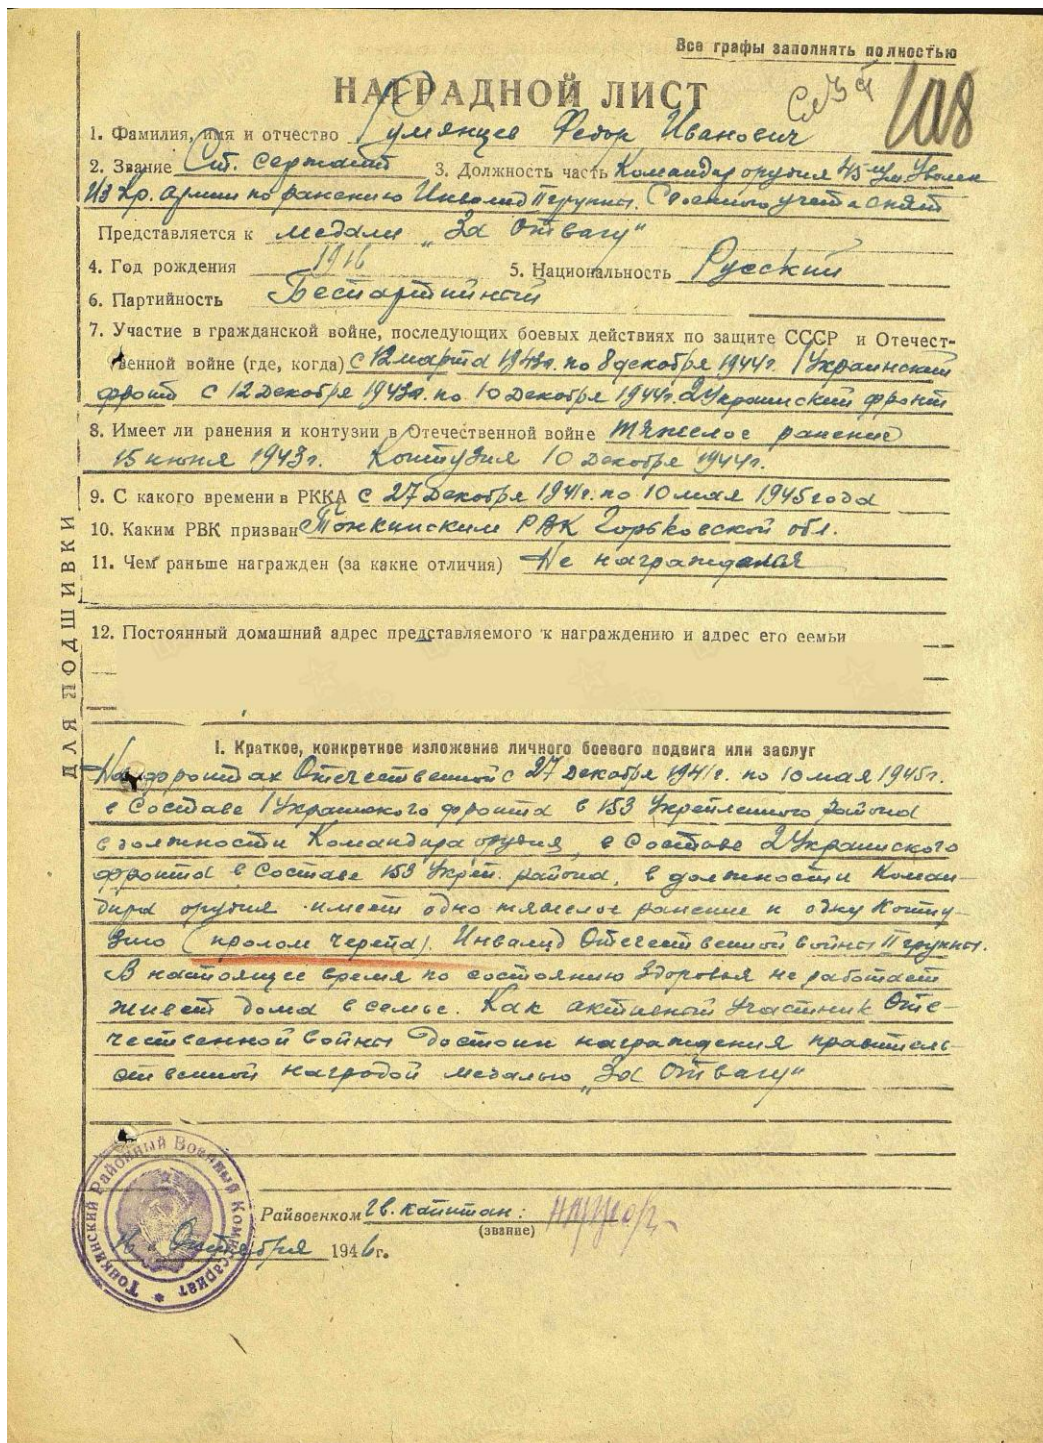 Все графы заполнять полностью
НАГРАДНОЙ ЛИСТ
108
1. Фамилия, имя и отчество Румянцев Федор Иванович
2. Звание Ст. Сержант 3. Должность часть Командир орудия 45 м/м Уволен
Из Кр. Армии по ранению Инвалид II группы. С военного учета снят
Представляется к медали „За Отвагу"
4. Год рождения 1916 5. Национальность Русский
6. Партийность Беспартийный
7. Участие в гражданской войне, последующих боевых действиях по защите СССР и Отечест-
венной войне (где, когда) с 12 марта 1943г. по 8 декабря 1944г. 1 Украинский
фронт с 12 Декабря 1943г. по 10 Декабря 1944г. 2 Украинский фронт
8. Имеет ли ранения и контузии в Отечественной войне тяжелое ранение
15 июня 1943г. Контузия 10 Декабря 1944г.
9. С какого времени в РККА с 27 Декабря 1941г. по 10 мая 1945 года
10. Каким РВК призван Тонкинским РВК Горьковской обл.
11. Чем раньше награжден (за какие отличия) Не награждался
12. Постоянный домашний адрес представляемого к награждению и адрес его семьи
ДЛЯ ПОДШИВКИ
I. Краткое, конкретное изложение личного боевого подвига или заслуг
На фронтах Отечественной с 27 Декабря 1941г. по 10 мая 1945г.
в Составе 1 Украинского фронта в 153 Укрепленного района
в должности Командира орудия, в Составе 2 Украинского
фронта в Составе 153 Укреп. района, в должности Коман-
дира орудия имеет одно тяжелое ранение и одну Конту-
зию (пролом черепа). Инвалид Отечественной войны II группы.
В настоящее время по состоянию Здоровья не работает
живет дома в семье. Как активный Участник Оте-
чественной Войны Достоин награждения правитель-
ственной наградой медалью „За Отвагу"
Тонкинский Районный Военный Комиссариат
Райвоенком Гв. капитан:
(звание)
16 Октября 1946г.